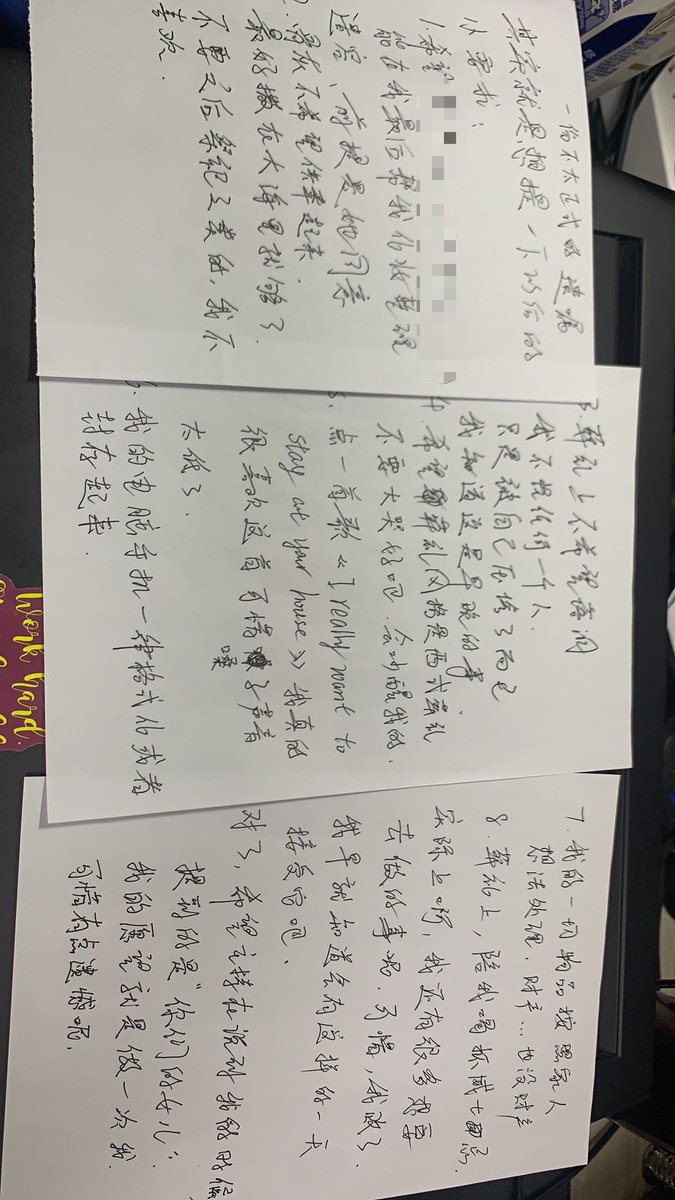 一份不太正式的遗嘱
其实就是想提一下以后的
小需求：
1.希望
能在我最后帮我化妆整理
遗容、前提是她同意
骨灰不希望供奉起来.
最好撒在大海里就够了.
不要之后祭祀之类的,我不
喜欢.
3.葬礼上不希望
我不恨任何一个人.
只是被自己压垮了而已
我知道这是早晚的事.
4.希望葬礼风格是西式葬礼
不要大哭好吧.会吵醒我的.
5.点一首歌《I really want to
stay at your house》我真的
很喜欢这首可惜嗓子声音
太低了
6.我的电脑手机一律格式化或者
封存起来.
7.我的一切物品按照家人
想法处理.财产…也没财产
8.葬礼上,陪我喝杯威士忌.
实际上啊,我还有很多想要
去做的事呢.可惜,我败了.
我早就知道会有这样的一天
接受它吧.
对了,希望主持在说到我的时候
提到的是“你们的女儿”.
我的愿望就是做一次我.
可惜有点遗憾呢.
work hard.